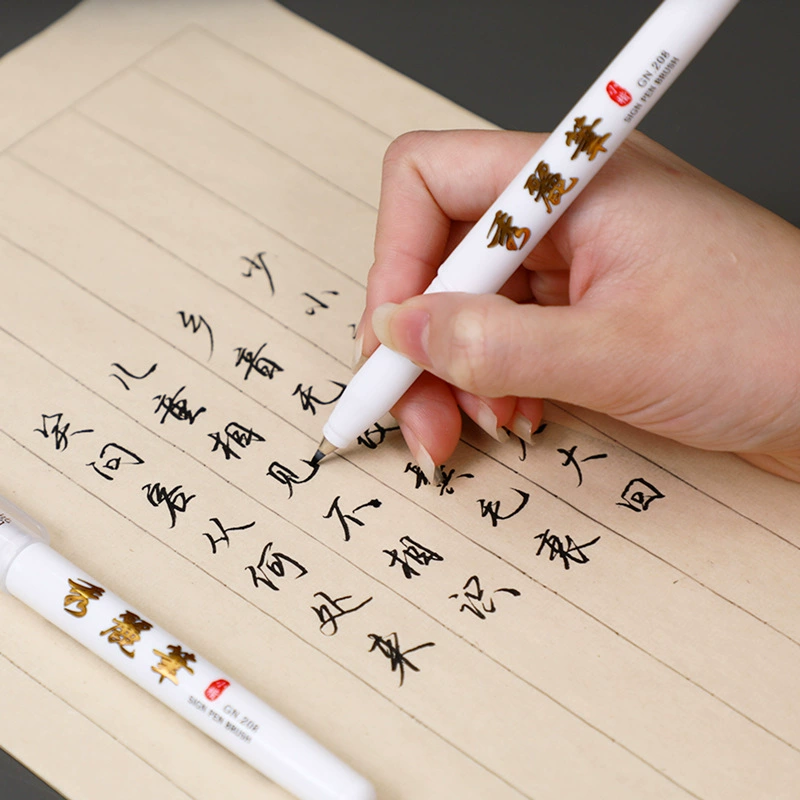 少小 大回
乡音无 毛衰
儿童相见不相识
笑问客从何处来
秀麗筆
小楷
GN 208
SIGN PEN BRUSH
秀麗筆
小楷
GN 208
SIGN PEN BRUSH